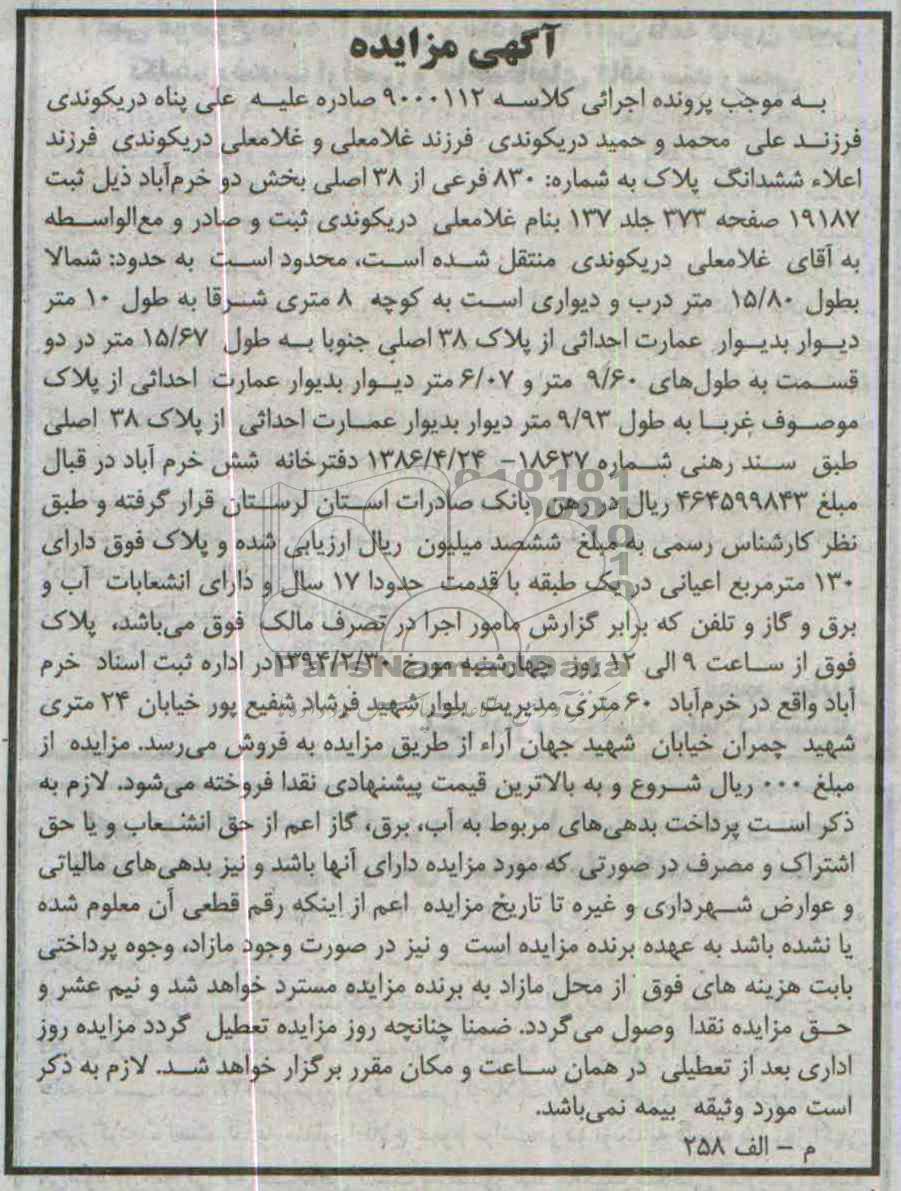 آگهی مزایده
به موجب پرونده اجرائی کلاسه ۹۰۰۰۱۱۲ صادره علیه علی پناه دریکوندی
فرزند علی محمد و حمید دریکوندی فرزند غلامعلی و غلامعلی دریکوندی فرزند
اعلاء ششدانگ پلاک به شماره: ۸۳۰ فرعی از ۳۸ اصلی بخش دو خرم‌آباد ذیل ثبت
۱۹۱۸۷ صفحه ۳۷۳ جلد ۱۳۷ بنام غلامعلی دریکوندی ثبت و صادر و مع‌الواسطه
به آقای غلامعلی دریکوندی منتقل شده است، محدود است به حدود: شمالا
بطول ۱۵/۸۰ متر درب و دیواری است به کوچه ۸ متری شرقا به طول ۱۰ متر
دیوار بدیوار عمارت احداثی از پلاک ۳۸ اصلی جنوبا به طول ۱۵/۶۷ متر در دو
قسمت به طول‌های ۹/۶۰ متر و ۶/۰۷ متر دیوار بدیوار عمارت احداثی از پلاک
موصوف غربا به طول ۹/۹۳ متر دیوار بدیوار عمارت احداثی از پلاک ۳۸ اصلی
طبق سند رهنی شماره ۱۸۶۲۷- ۱۳۸۶/۴/۲۴ دفترخانه شش خرم آباد در قبال
مبلغ ۴۶۴۵۹۹۸۴۳ ریال در رهن بانک صادرات استان لرستان قرار گرفته و طبق
نظر کارشناس رسمی به مبلغ ششصد میلیون ریال ارزیابی شده و پلاک فوق دارای
۱۳۰ مترمربع اعیانی در یک طبقه با قدمت حدودا ۱۷ سال و دارای انشعابات آب و
برق و گاز و تلفن که برابر گزارش مامور اجرا در تصرف مالک فوق می‌باشد، پلاک
فوق از ساعت ۹ الی ۱۲ روز چهارشنبه مورخ ۱۳۹۴/۲/۳۰ در اداره ثبت اسناد خرم
آباد واقع در خرم‌آباد ۶۰ متری مدیریت بلوار شهید فرشاد شفیع پور خیابان ۲۴ متری
شهید چمران خیابان شهید جهان آراء از طریق مزایده به فروش می‌رسد. مزایده از
مبلغ ۰۰۰ ریال شروع و به بالاترین قیمت پیشنهادی نقدا فروخته می‌شود. لازم به
ذکر است پرداخت بدهی‌های مربوط به آب، برق، گاز اعم از حق انشعاب و یا حق
اشتراک و مصرف در صورتی که مورد مزایده دارای آنها باشد و نیز بدهی‌های مالیاتی
و عوارض شهرداری و غیره تا تاریخ مزایده اعم از اینکه رقم قطعی آن معلوم شده
یا نشده باشد به عهده برنده مزایده است و نیز در صورت وجود مازاد، وجوه پرداختی
بابت هزینه های فوق از محل مازاد به برنده مزایده مسترد خواهد شد و نیم عشر و
حق مزایده نقدا وصول می‌گردد. ضمنا چنانچه روز مزایده تعطیل گردد مزایده روز
اداری بعد از تعطیلی در همان ساعت و مکان مقرر برگزار خواهد شد. لازم به ذکر
است مورد وثیقه بیمه نمی‌باشد.
م – الف ۲۵۸
ParsNamadData